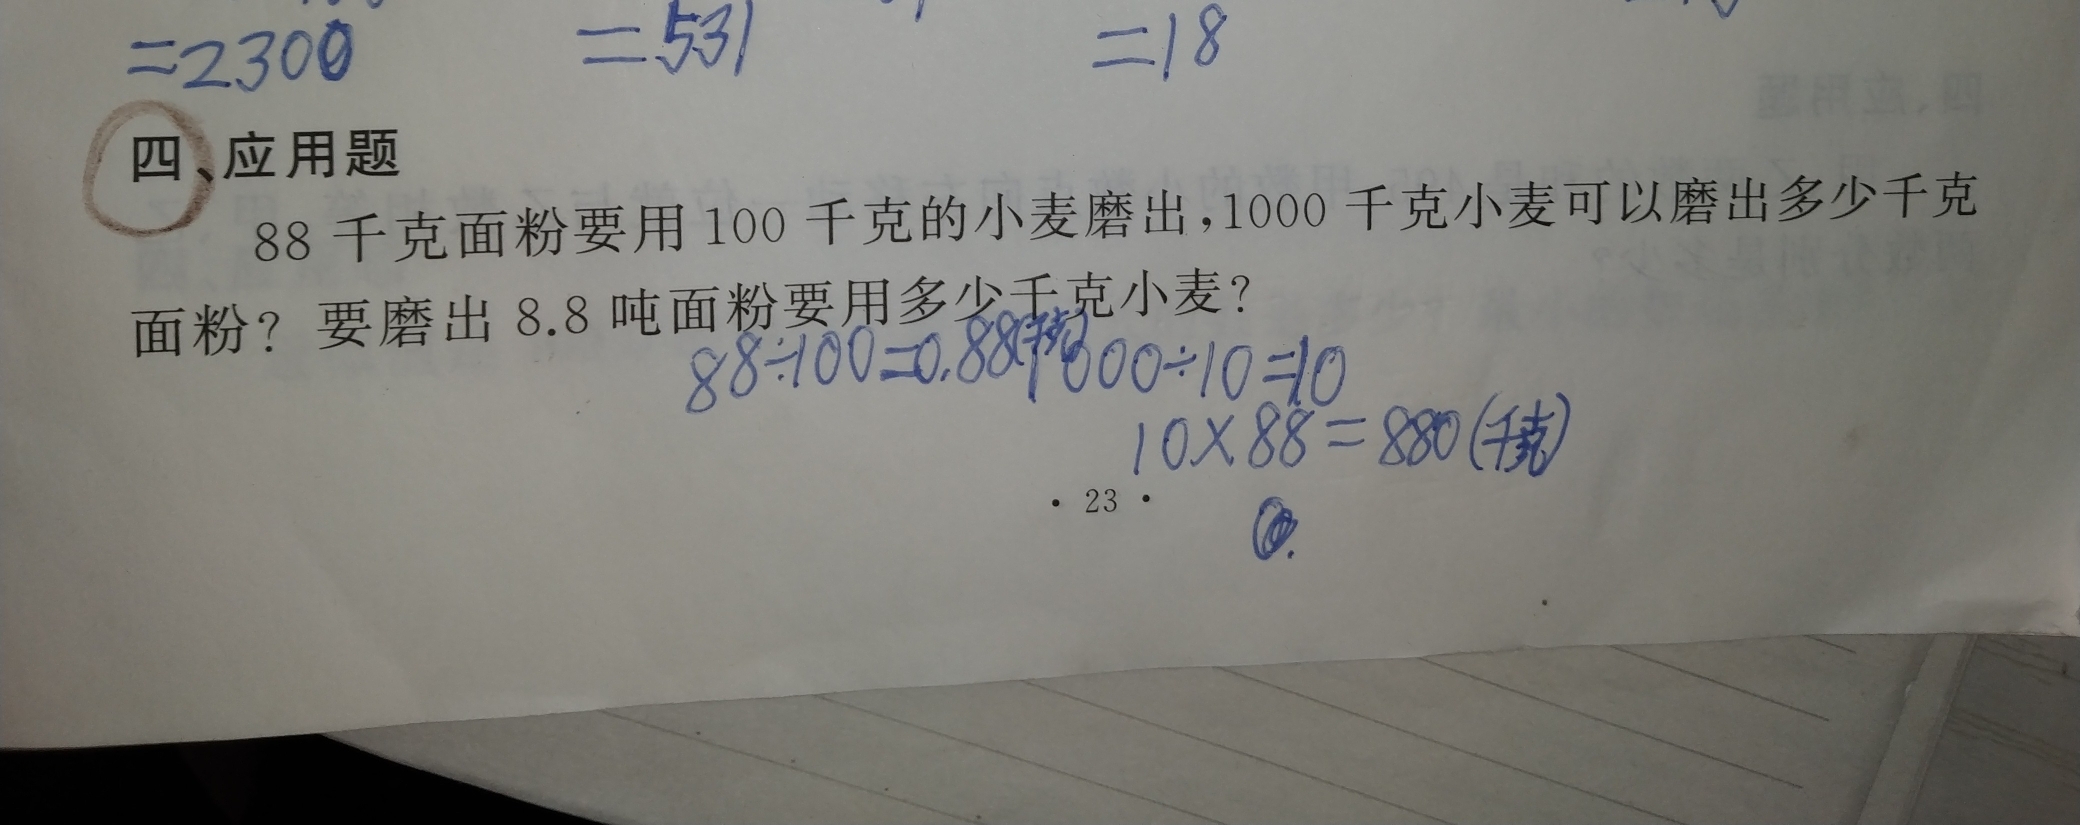 =2300 =531 =18
四、应用题
88千克面粉要用100千克的小麦磨出,1000千克小麦可以磨出多少千克
面粉?要磨出8.8吨面粉要用多少千克小麦?
88÷100=0.88(千克) 1000÷10=10
10×88=880(千克)
·23·